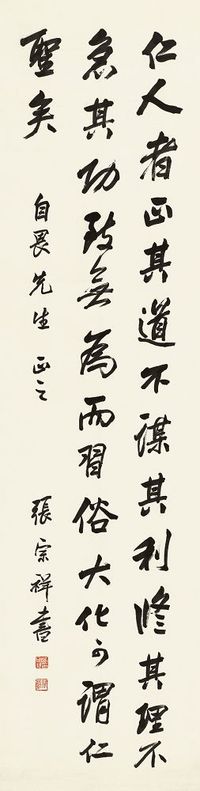 仁人者正其道不謀其利修其理不
急其功致無為而習俗大化可謂仁
聖矣
自畏先生正之
張宗祥書